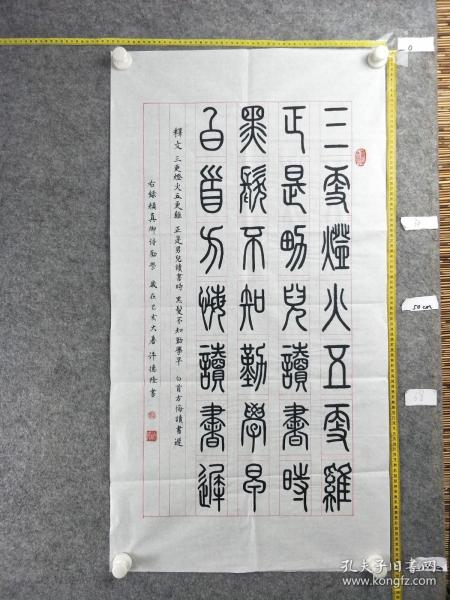 三更燈火五更雞
正是男兒讀書時
黑髮不知勤學早
白首方悔讀書遲
釋文 三更燈火五更雞 正是男兒讀書時 黑髮不知勤學早 白首方悔讀書遲
右錄顏真卿詩勸學 歲在己亥大暑 許德隆書
0
50cm
孔夫子旧书网
www.kongfz.com